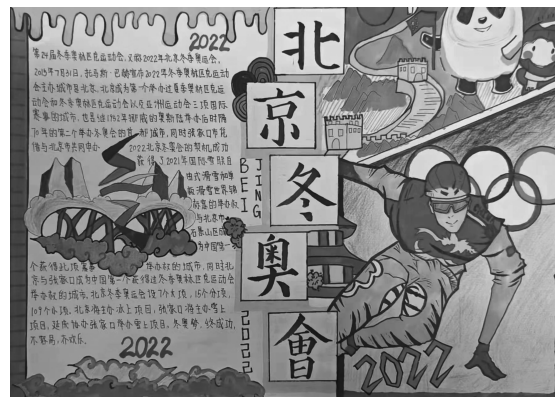 2022
第24届冬季奥林匹克运动会,又称2022年北京冬季奥运会,
2015年7月31日,托马斯·巴赫宣布2022年冬季奥林匹克运动
会主办城市是北京,北京成为第一个举办过夏季奥林匹克运
动会和冬季奥林匹克运动会以及亚洲运动会三项国际
赛事的城市,也是继1952年挪威的奥斯陆举办后时隔
70年的第二个举办冬奥会的首都城市,同时张家口市
2022北京冬奥会的契机成功
获得了2021年国际雪联自
由式滑雪
个获得
举办权的城市,同时北
京与张家口成为中国第一个获得过冬季奥林匹克运动会
举办权的城市,北京冬季奥运会设7个大项,15个分项,
109个小项,北京将主办冰上项目,张家口将主办雪上
项目,延庆协办张家口举办雪上项目,冬奥梦,终成功,
不努易,亦欢乐.
2022
北
京
冬
奥
會
BEI
JING
2022
2022